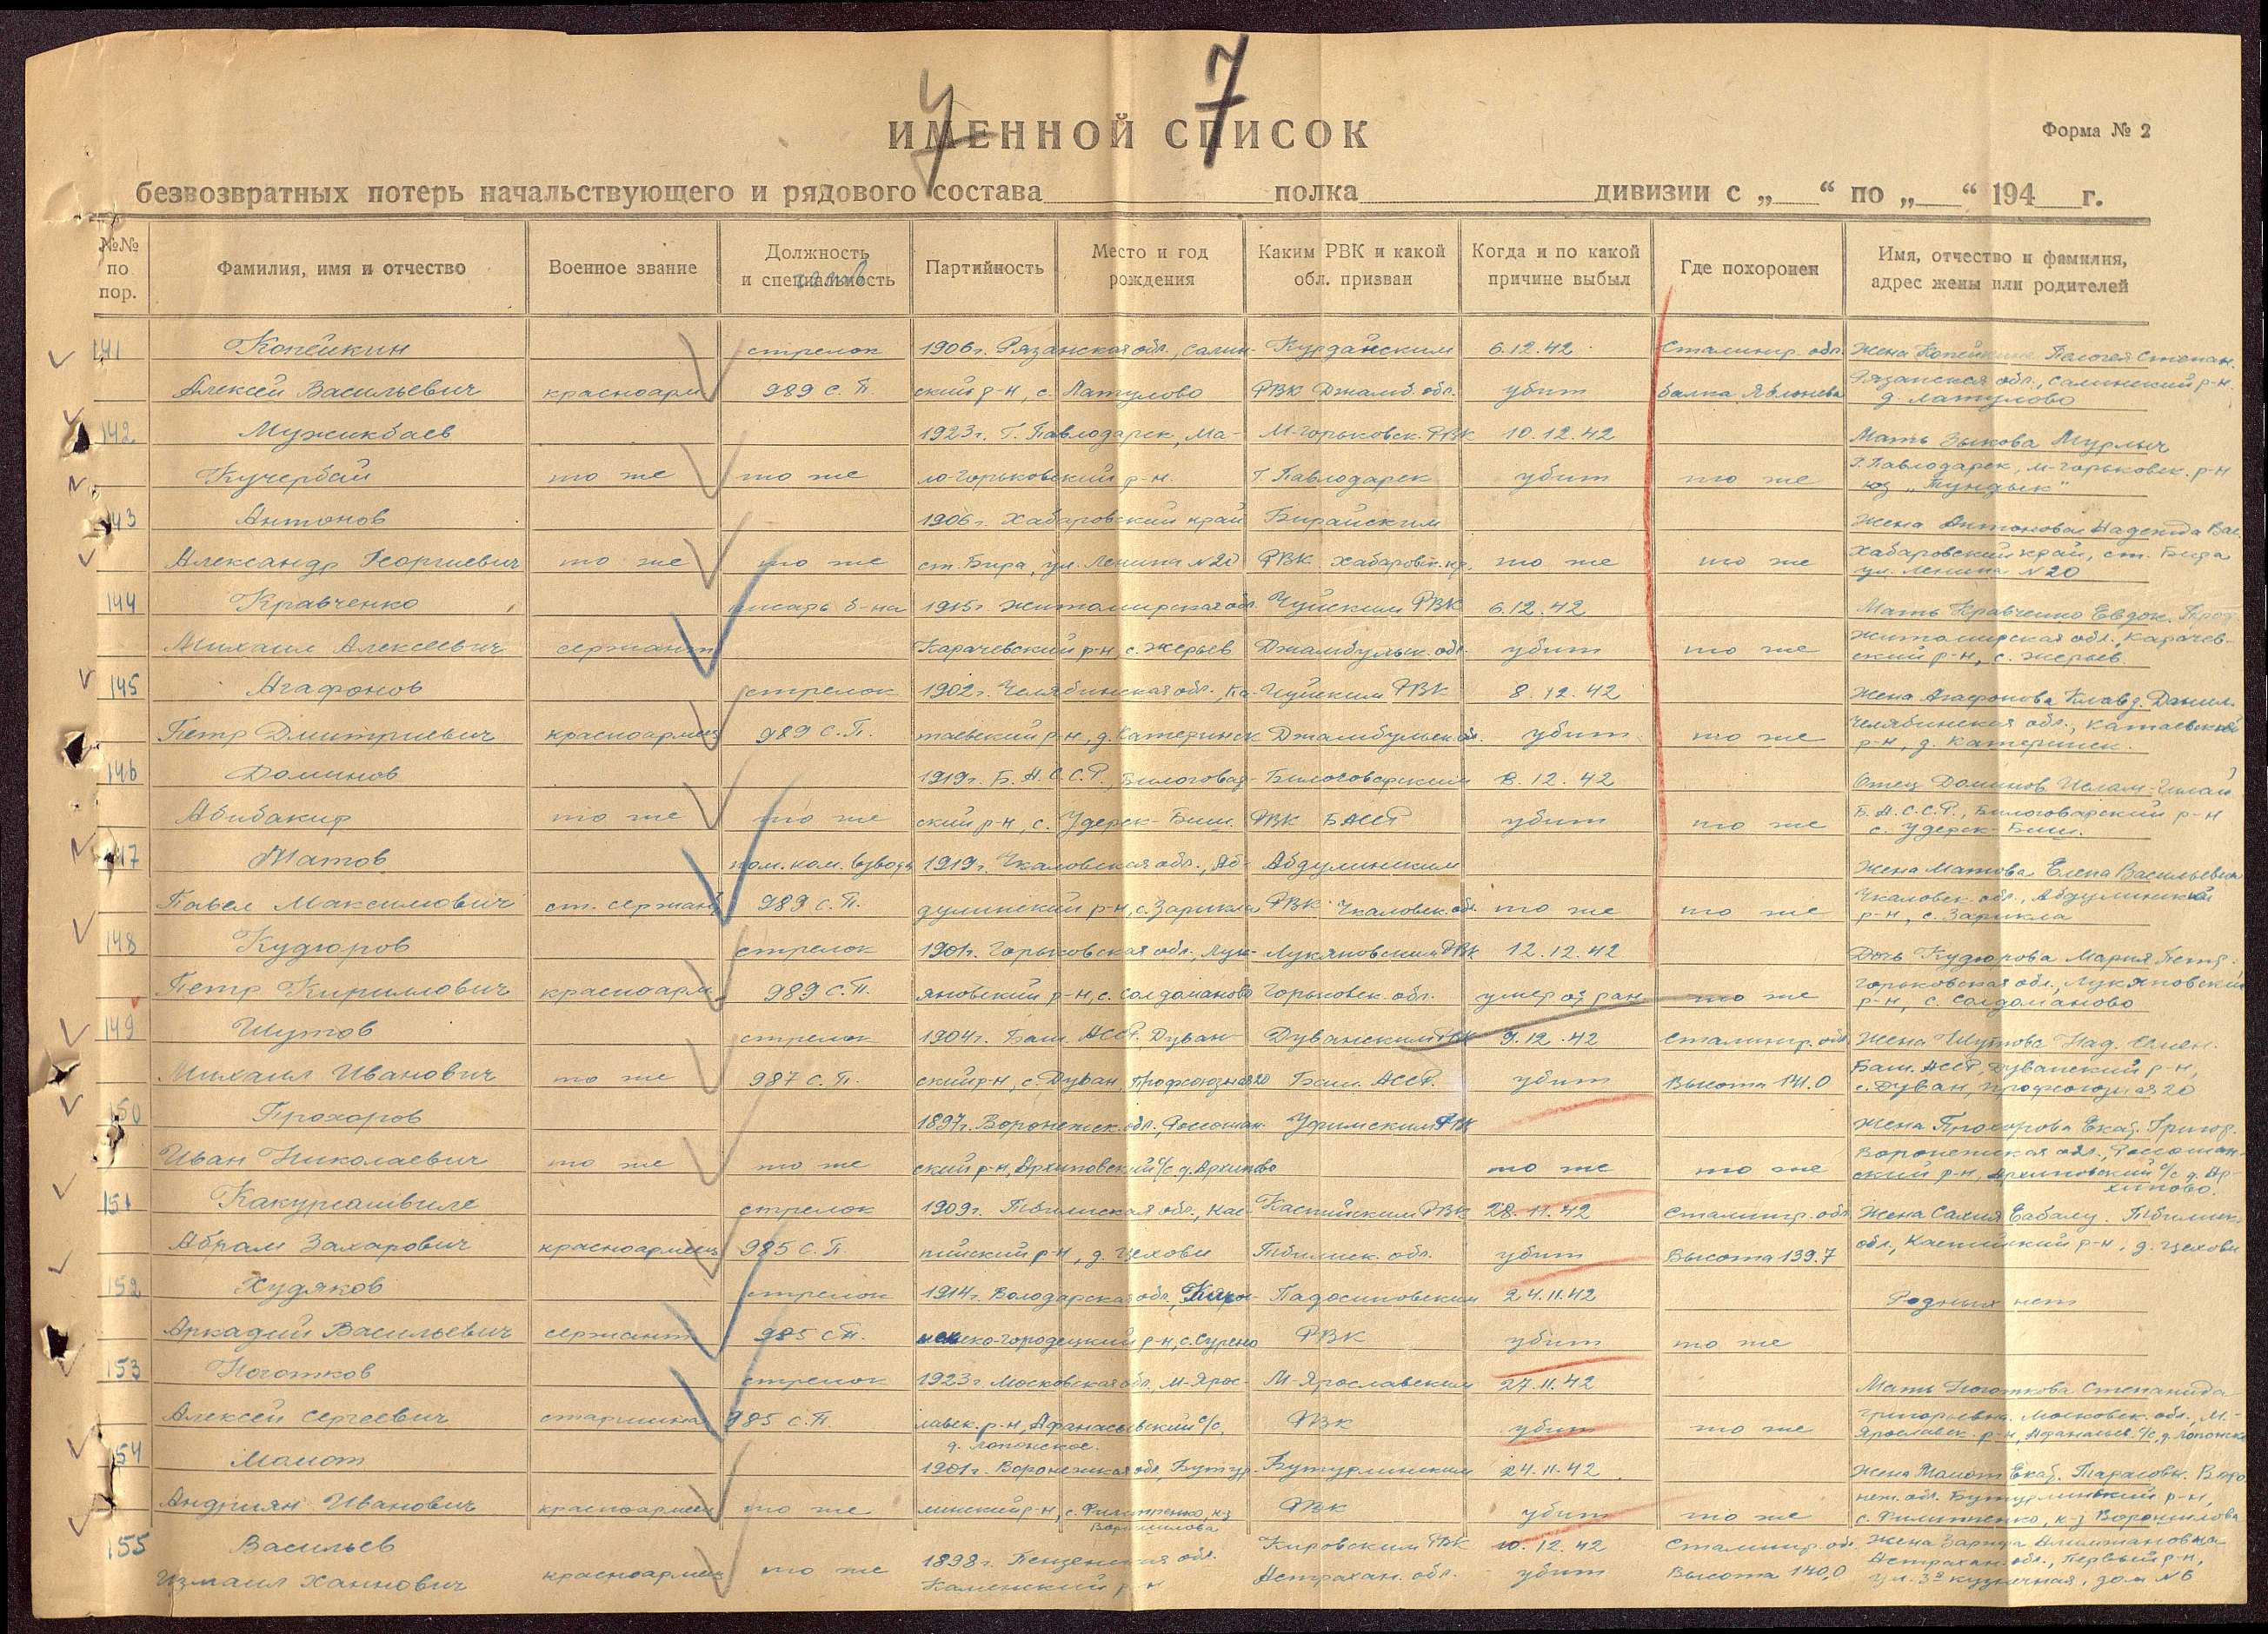 7
ИМЕННОЙ СПИСОК
Форма № 2
безвозвратных потерь начальствующего и рядового состава полка дивизии с „ “ по „ “ 194 г.
№№ по пор.
Фамилия, имя и отчество
Военное звание
Должность и специальность
Партийность
Место и год рождения
Каким РВК и какой обл. призван
Когда и по какой причине выбыл
Где похоронен
Имя, отчество и фамилия, адрес жены или родителей
141 Копейкин стрелок 1906 г. Рязанская обл., Сапин- Курдайским 6.12.42 Сталингр. обл. Жена Копейкина Пелагея Степан.
Алексей Васильевич красноарм 989 с.п. ский р-н, с. Латулово РВК Джамб. обл. убит балка Яблонева Рязанская обл., Сапинский р-н
д. Латулово
142 Мужикбаев 1923 г. г. Павлодарск, Ма- М-Горьковск. РВК 10.12.42 Мать Зыкова Мурлыч
Кучербай то же то же ло-Горьковский р-н. г. Павлодарск убит то же г. Павлодарск, М-Горьковск. р-н
к-з „Тундык“
143 Антонов 1906 г. Хабаровский край Бирайским Жена Антонова Надежда Вас.
Александр Георгиевич то же то же ст. Бира, ул. Ленина №20 РВК Хабаровск. кр. то же то же Хабаровский край, ст. Бира
ул. Ленина №20
144 Кравченко писарь б-на 1915 г. Житомирская обл. Чуйским РВК 6.12.42 Мать Кравченко Евдок.
Михаил Алексеевич сержант Карачевский р-н, с. Жерьев Джамбульск. обл. убит то же Житомирская обл., Карачев-
ский р-н, с. Жерьев.
145 Агафонов стрелок 1902 г. Челябинская обл., Ка- Чуйским РВК 8.12.42 Жена Агафонова Клавд. Данил.
Петр Дмитриевич красноармеец 989 с.п. таевский р-н, д. Катеринск Джамбульской обл. убит то же Челябинская обл., Катаевский
р-н, д. Катеринск.
146 Доминов 1919 г. Б.А.С.С.Р., Билоговар- Билоговарским 8.12.42 Отец Доминов Ислам-
Абибакир то же то же ский р-н, с. Удерек-Биш. РВК БАССР убит то же Б.А.С.С.Р., Билоговарский р-н
с. Удерек-Биш.
147 Матов пом. ком. взвода 1919 г. Чкаловская обл., Аб- Абдулинским Жена Матова Елена Васильевна
Павел Максимович ст. сержант 989 с.п. дулинский р-н, с. Зарикла РВК Чкаловск. обл. то же то же Чкаловск. обл., Абдулинский
р-н, с. Зарикла
148 Кудюров стрелок 1901 г. Горьковская обл., Лук- Лукяновским РВК 12.12.42 Дочь Кудюрова Мария Петр.
Петр Кириллович красноарм. 989 с.п. яновский р-н, с. Салдаманово Горьковск. обл. умер от ран то же Горьковская обл., Лукяновский
р-н, с. Салдаманово
149 Шутов стрелок 1904 г. Баш. АССР. Дуван- Дуванским РВК 9.12.42 Сталингр. обл Жена Шутова Над. Семен.
Михаил Иванович то же 987 с.п. ский р-н, с. Дуван, Профсоюзная 20 Баш. АССР. убит Высота 141.0 Баш. АССР, Дуванский р-н,
с. Дуван, Профсоюзная 20
150 Прохоров 1897 г. Воронежск. обл., Россошан- Уфимским РВК Жена Прохорова Екат. Григор.
Иван Николаевич то же то же ский р-н, Архиповский с/с д. Архипово то же то же Воронежская обл., Россошан-
ский р-н, Архиповский с/с д. Ар-
хипово.
151 Какурсашвиле стрелок 1909 г. Тбилиская обл., Кас- Каспийским РВК 28.11.42 Сталингр. обл Жена Сахия Бабалу. Тбилиск.
Абрам Захарович красноармеец 985 с.п. пийский р-н, д. Цехови Тбилиск. обл. убит Высота 139.7 обл., Каспийский р-н, д. Цехови
152 Худяков стрелок 1914 г. Володарская обл., Кич- Падосиновским 24.11.42 Родных нет
Аркадий Васильевич сержант 985 с.п. менско-Городецкий р-н, с. Сурено РВК убит то же
153 Ноготков стрелок 1923 г. Московская обл., М-Ярос- М-Ярославским 27.11.42 Мать Ноготкова Степанида
Алексей Сергеевич старшина 985 с.п. лавск. р-н, Афанасьевский с/с, РВК убит то же Григорьевна. Московск. обл., М-
д. Лопонское. Ярославск. р-н, Афанасьев. с/с, д. Лопонское
154 Мамот 1901 г. Воронежская обл., Бутур- Бутурлинским 24.11.42 Жена Мамот Екат. Тарасовн. Воро-
Андриян Иванович красноармеец то же линский р-н, с. Филипенко, к-з РВК убит то же неж. обл. Бутурлинский р-н,
Ворошилова с. Филиппенко, к-з Ворошилова
155 Васильев 1898 г. Пензенская обл. Кировским РВК 10.12.42 Сталингр. обл. Жена Зарифа Алимжановна
Измаил Ханнович красноармеец то же Каменский р-н Астрахан. обл. убит Высота 140,0 Астрахан. обл., Первый р-н,
ул. 3я кузнечная, дом №6